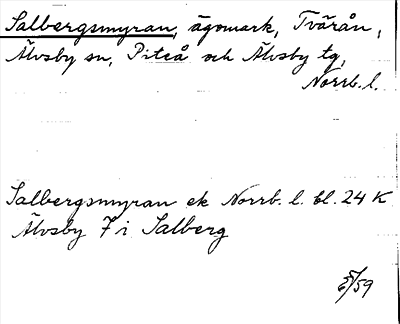 Salbergsmyran, ägomark, Tvärån,
Älvsby sn, Piteå och Älvsby tg,
Norrb. l.
Salbergsmyran ek Norrb. l. bl. 24 K
Älvsby 7 i Salberg
/59